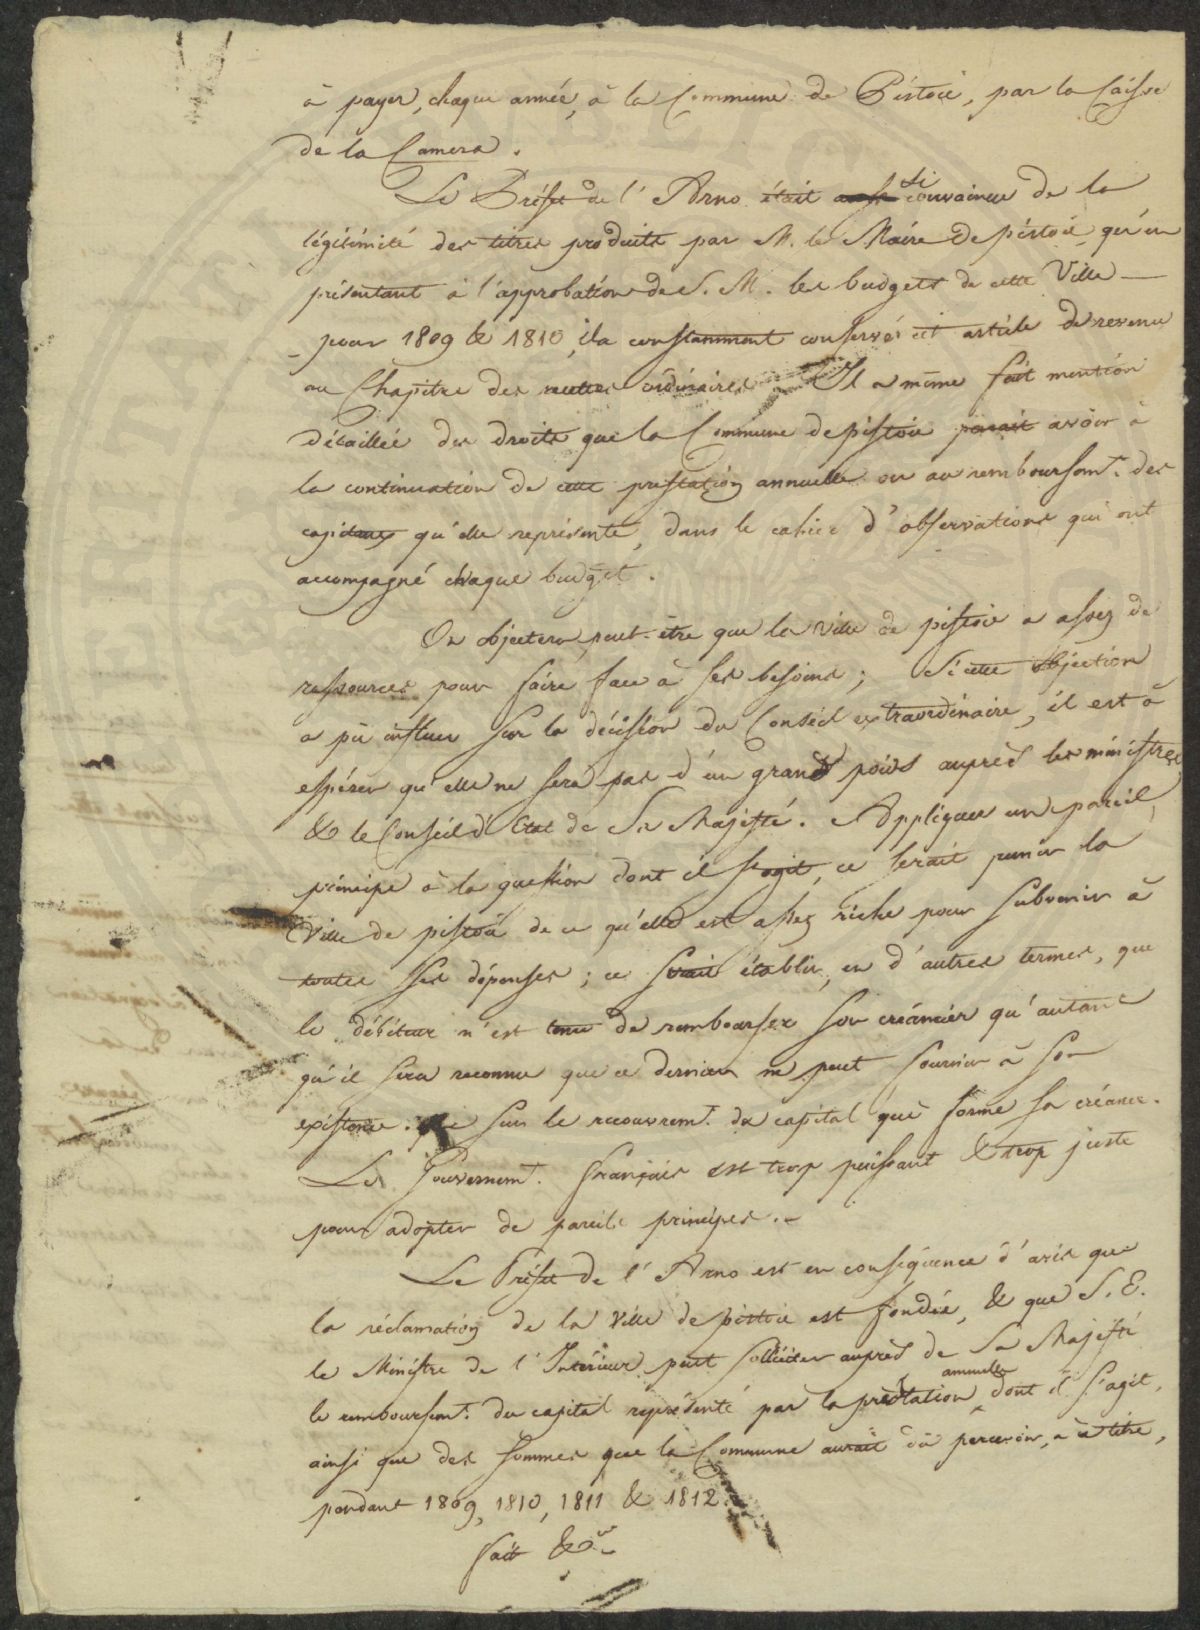 à payer, chaque année, à la Commune de Pistoie, par la Caisse
de la Camera.
Le Préfet de l'Arno était si convaincu de la
légitimité des titres produits par M. le Maire de pistoie qu'en
présentant à l'approbation de S. M. les budgets de cette Ville
pour 1809 & 1810, il a constamment conservé cet article de revenu
au Chapitre des recettes ordinaires. Il a même fait mention
détaillée des droits que la Commune de pistoie parait avoir à
la continuation de cette prestation annuelle ou au remboursemt. des
capitaux qu'elle représente, dans le cahier d'observations qui ont
accompagné chaque budget.
On objectera peut-être que la Ville de pistoie a assez de
ressources pour faire face à ses besoins; Si cette objection
a pû influer sur la décision du Conseil extraordinaire, il est à
espérer qu'elle ne sera pas d'un grand poids auprès les ministres
& le Conseil d'Etat de Sa Majesté. Appliquer un pareil
principe à la question dont il s'agit, ce serait punir la
Ville de pistoie de ce qu'elle est assez riche pour subvenir à
toutes ses dépenses; ce serait établir, en d'autres termes, que
le débiteur n'est tenu de rembourser son créancier qu'autant
qu'il sera reconnu que ce dernier ne peut fournir à son
existence. que sur le recouvremt. du capital que forme sa créance.
Le Gouvernemt. français est trop puissant & trop juste
pour adopter de pareils principes.
Le Préfet de l'Arno est en conséquence d'avis que
la réclamation de la Ville de pistoie est fondée, & que S. E.
le Ministre de l'Intérieur peut solliciter auprès de Sa Majesté
le remboursemt. du capital représenté par la prestation annuelle dont il s'agit,
ainsi que des sommes que la Commune aurait dû percevoir, à ce titre,
pendant 1809, 1810, 1811 & 1812.
fait &